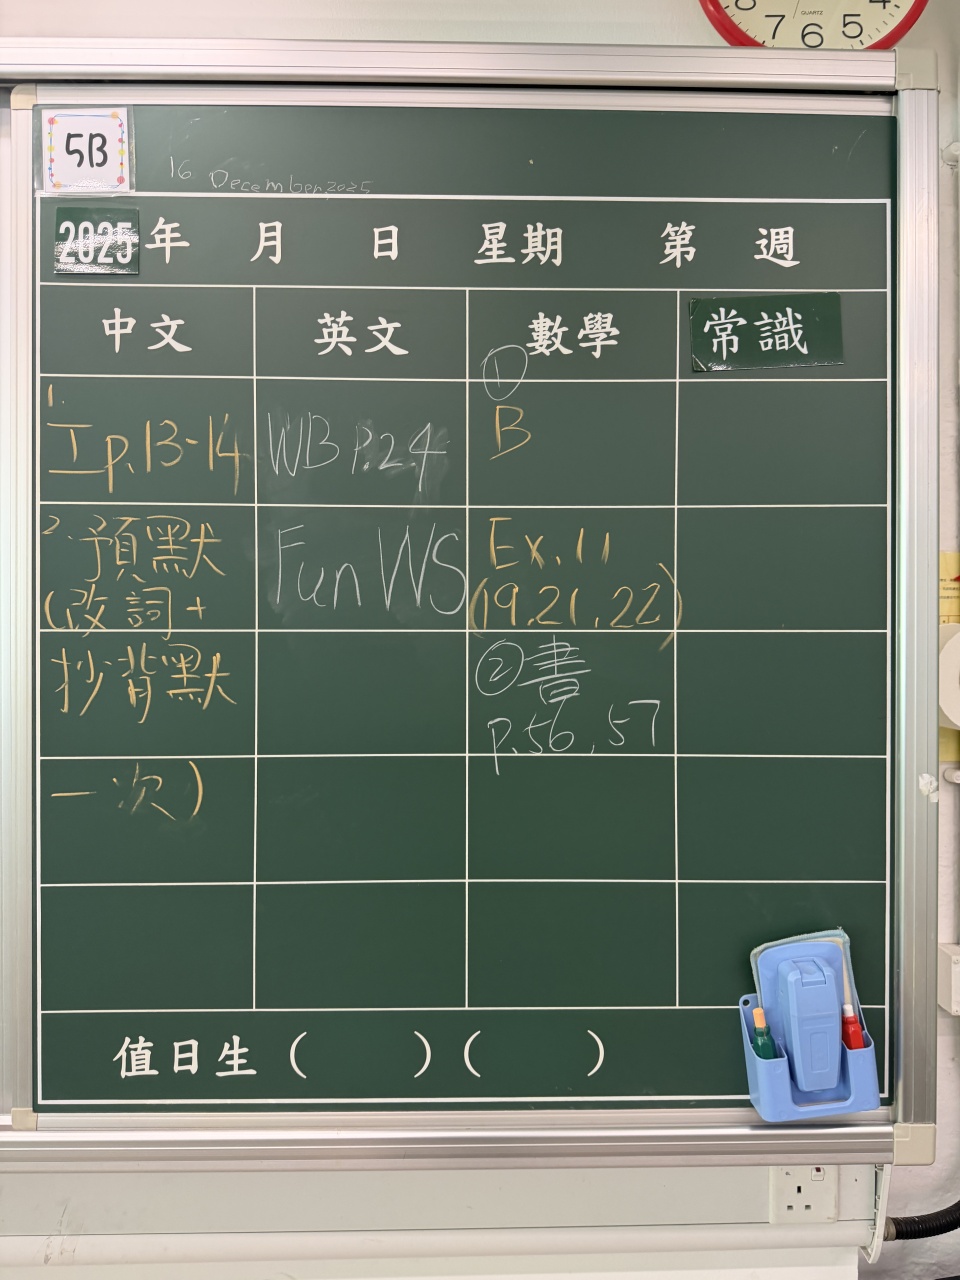 8 7 6 5 4
QUARTZ
5B
16 December 2025
2025年 月 日 星期 第 週
中文 英文 數學 常識
1.
工p.13-14
2.預默
(改詞+
抄背默
一次)
WB P.24
Fun WS
①
B
Ex.11
(19,21,22)
②書
p.56,57
值日生 ( ) ( )